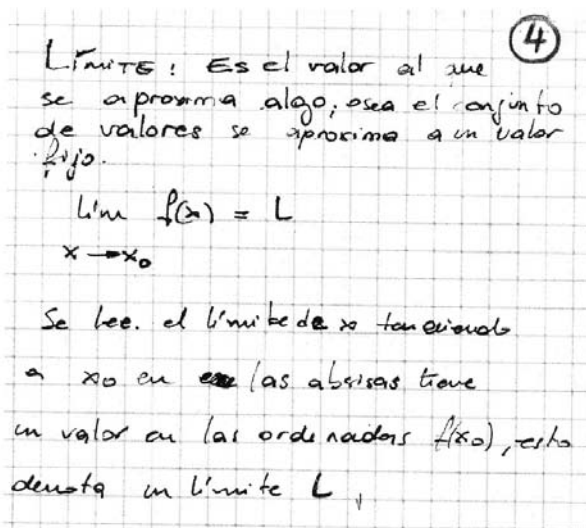 4
Límite: Es el valor al que
se aproxima algo, osea el conjunto
de valores se aproxima a un valor
fijo.
Lím f(x) = L
x → x₀
Se lee. el límite de x tendiendo
a x₀ en las absisas tiene
un valor en las ordenadas f(x₀), esto
denota un límite L